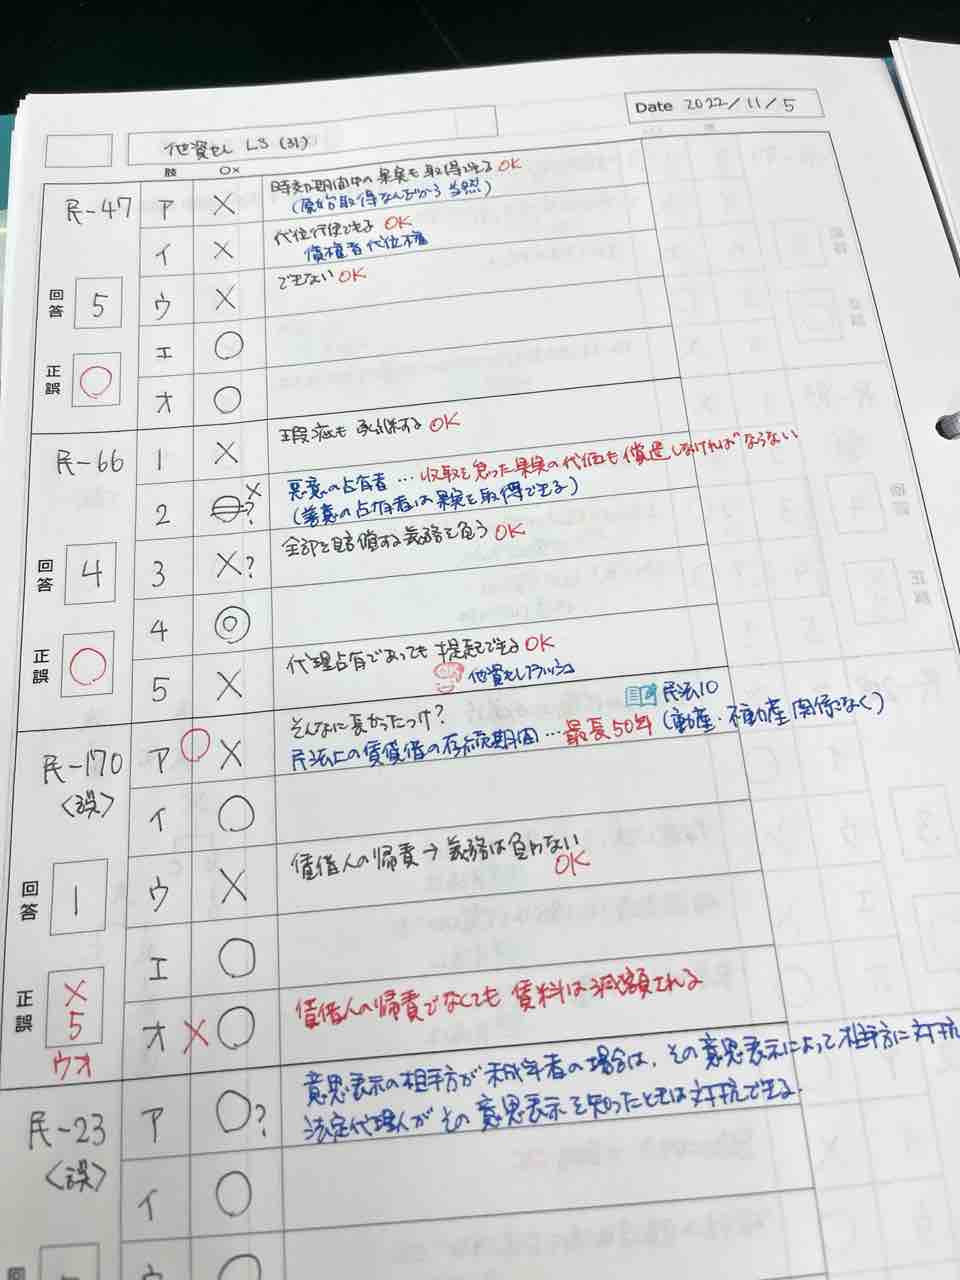 Date 2022/11/5
他資セレ LS (31)
肢 ○×
民-47 ア × 時効期間中の果実も取得できる OK
(原始取得なんだから当然)
イ × 代位行使できる OK
債権者代位権
回答 5 ウ × できない OK
エ ○
正誤 ○ オ ○
民-66 1 × 瑕疵も承継する OK
2 ○ ×? 悪意の占有者…収取を怠った果実の代価も償還しなければならない
(善意の占有者は果実を取得できる)
回答 4 3 ×? 全部を賠償する義務を負う OK
4 ◎
正誤 ○ 5 × 代理占有であっても提起できる OK
OK 他資セレフラッシュ
民-170 ア ○ × そんなに長かったっけ? 民法10
〈誤〉 民法上の賃貸借の存続期間…最長50年(動産・不動産関係なく)
イ ○
回答 1 ウ × 賃借人の帰責→義務は負わない
OK
エ ○
正誤 × 5 ウオ オ × ○ 賃借人の帰責でなくても賃料は減額される
民-23 ア ○? 意思表示の相手方が未成年者の場合は、その意思表示によって相手方に対抗
〈誤〉 法定代理人がその意思表示を知ったときは対抗できる.
イ ○
回 ウ